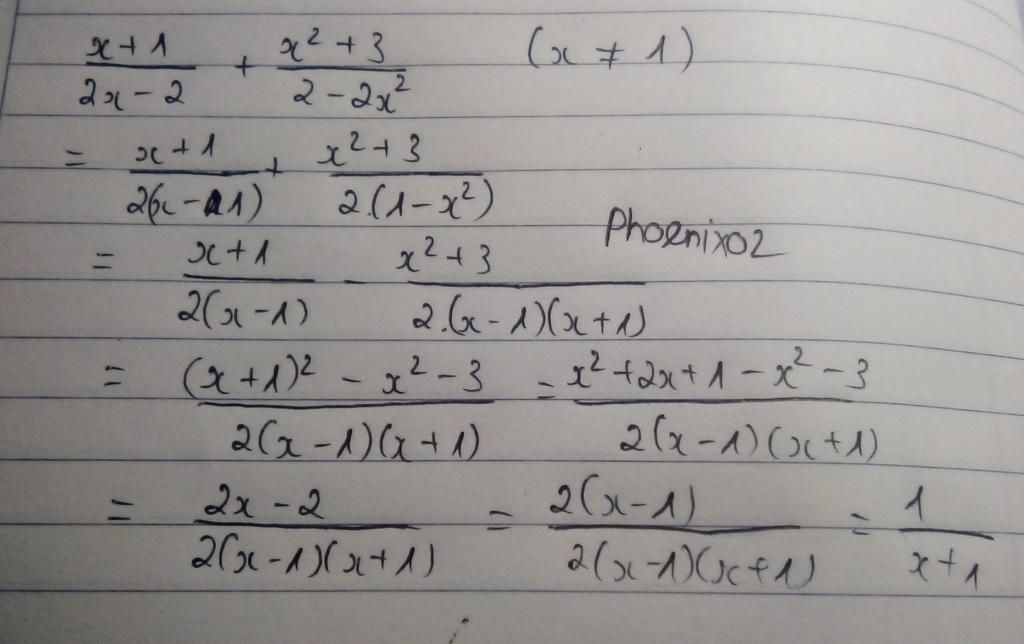 x+1/2x-2 + x²+3/2-2x² (x ≠ 1)
= x+1/2(x-1) + x²+3/2.(1-x²)
Phoenix02
= x+1/2(x-1) - x²+3/2.(x-1)(x+1)
= (x+1)²-x²-3/2(x-1)(x+1) = x²+2x+1-x²-3/2(x-1)(x+1)
= 2x-2/2(x-1)(x+1) = 2(x-1)/2(x-1)(x+1) = 1/x+1